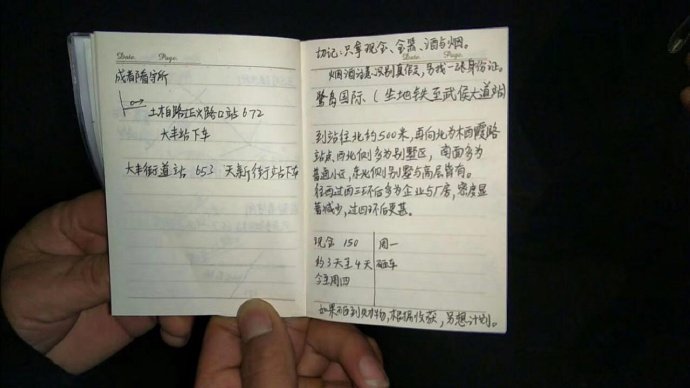 Date. Page.
成都看守所
土柏路正义路口站 672
大丰站下车
大丰街道站 653 天新街站下车
切记:只拿现金、金器、酒与烟。
Date. Page.
烟酒注意识别真假,另找一张身份证。
鹭岛国际、(坐地铁至武侯大道站)
到站往北约500米,再向北为木西霞路
站点,西北侧多为别墅区,南面多为
普通小区,东北侧别墅与高层皆有。
往西过四三环后多为企业与厂房,密度显
著减少,过四环后更甚。
现金 150 周一
约3天至4天 砸车
今至周四
如果 到财物,根据收获,另想计划。